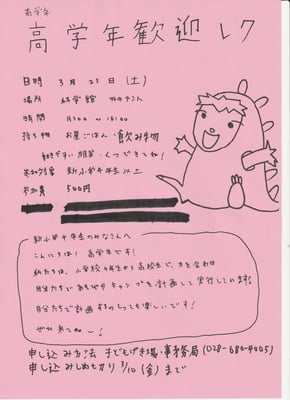 高学年
高学年歓迎レク
日時 3月25日(土)
場所 科学館 テント
時間 11:00〜16:00
持ち物 お昼ごはん・飲み物
動きやすい服装・くつできてね!
参加対象 新小学4年生以上
参加費 500円
新小学4年生のみなさんへ
こんにちは! 高学年です!
私たちは、小学校4年生から高校生で、力を合わせ
自分たちであそびやキャンプを計画して実行しています!
自分たちで計画するのとっても楽しいです!
ぜひ来てね〜!
申し込み方法 子どもげき場・事務局(028-680-4005)
申し込みしめきり 3/10(金)まで